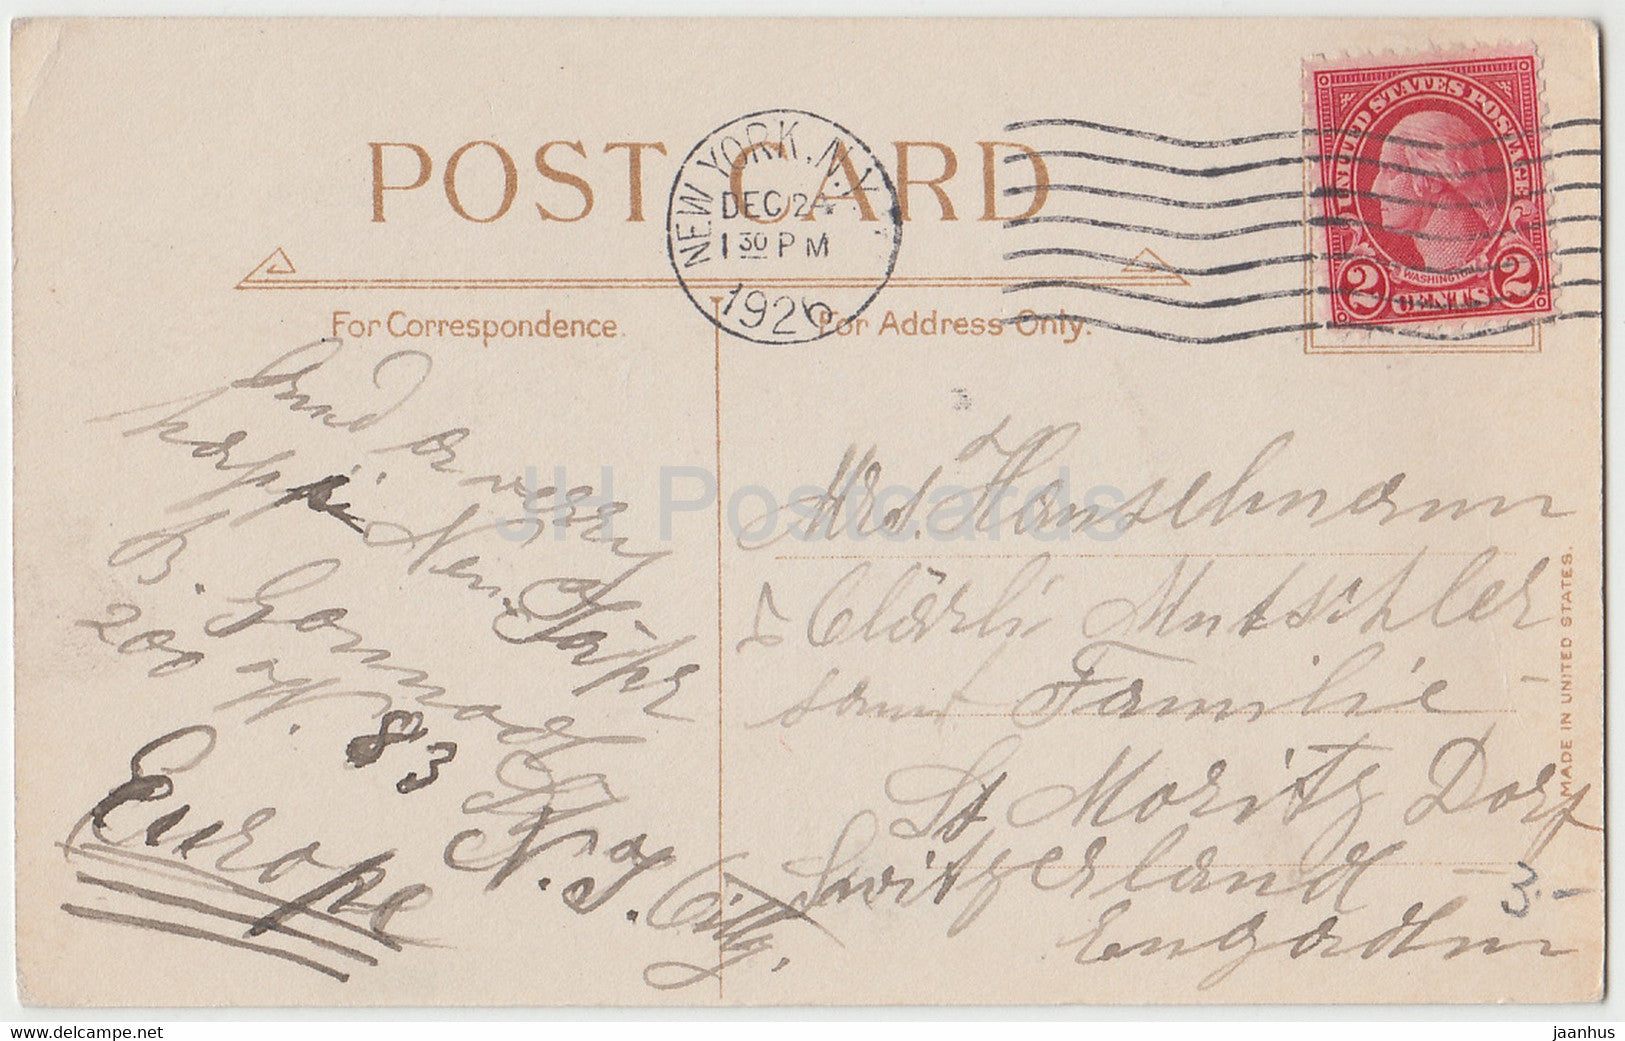 POST CARD
NEW YORK, N.Y.
DEC 24
1 30 PM
1926
UNITED STATES POSTAGE
WASHINGTON
2 CENTS 2
For Correspondence.
For Address Only.
And a very
happi New
B.
200 W. 83
N. Y. City.
Europe
Hanselmann
Clärli Mutschler
samt Familie
St Moritz Dorf
Switzerland
Engadin
3.-
MADE IN UNITED STATES.
JH Postcards
www.delcampe.net
jaanhus